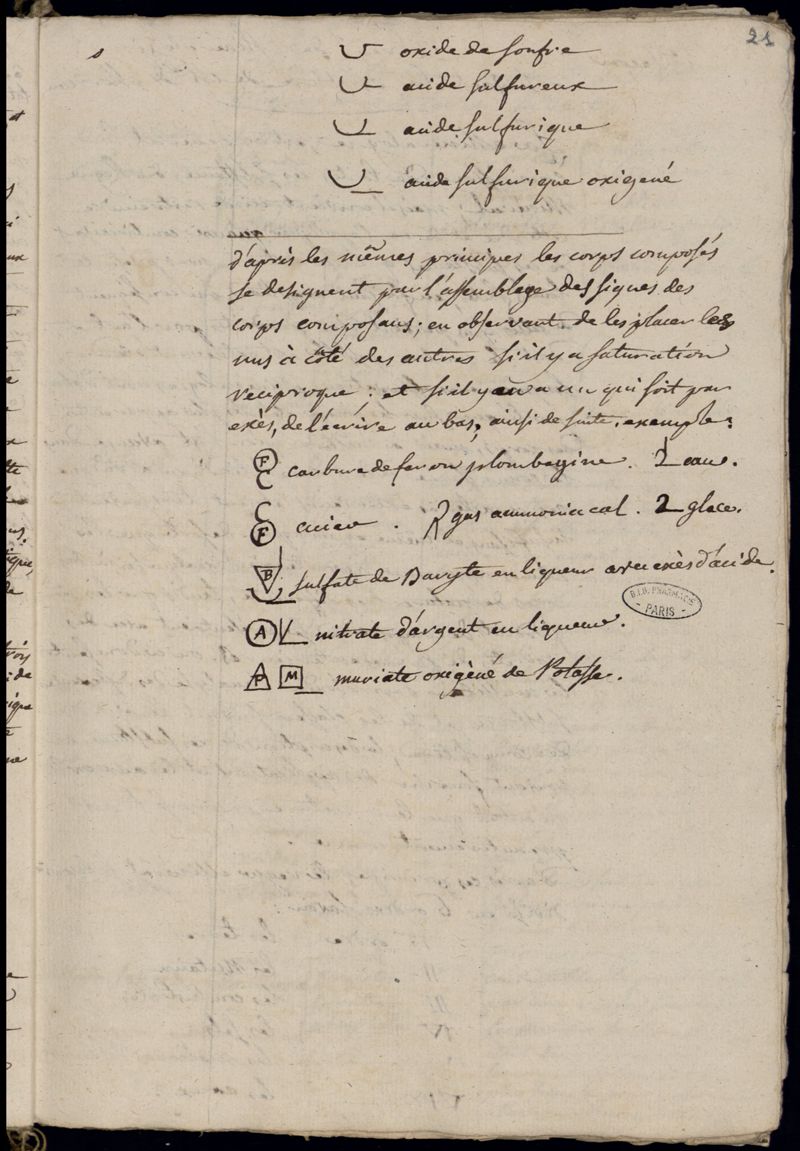 21
oxide de soufre
acide sulfureux
acide sulfurique
acide sulfurique oxigené
d'après les mêmes principes les corps composés
se designent par l'assemblage des signes des
corps composans; en observant de les placer les
uns à côté des autres s'il y a saturation
reciproque; et s'il y en a un qui soit par
exès, de l'écrire au bas, ainsi de suite. exemple:
F carbure de fer ou plombagine. eau.
F acier. gas ammoniacal. glace.
B sulfate de Baryte en liqueur avec exès d'acide.
B.I.U. PHARMACIE
PARIS
A nitrate d'argent en liqueur.
P M muriate oxigèné de Potasse.